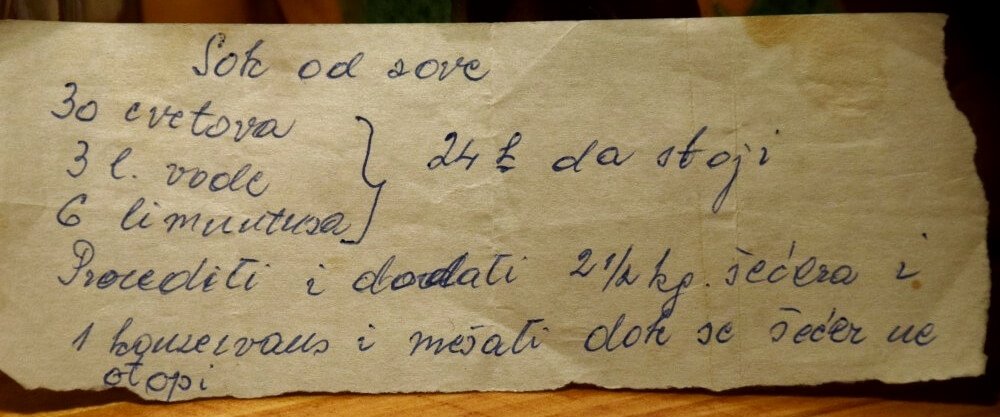 Sok od zove
30 cvetova
3 l. vode } 24 h da stoji
6 limuntusa
Procediti i dodati 2 1/2 kg. šećera i
1 konzervans i mešati dok se šećer ne
otopi